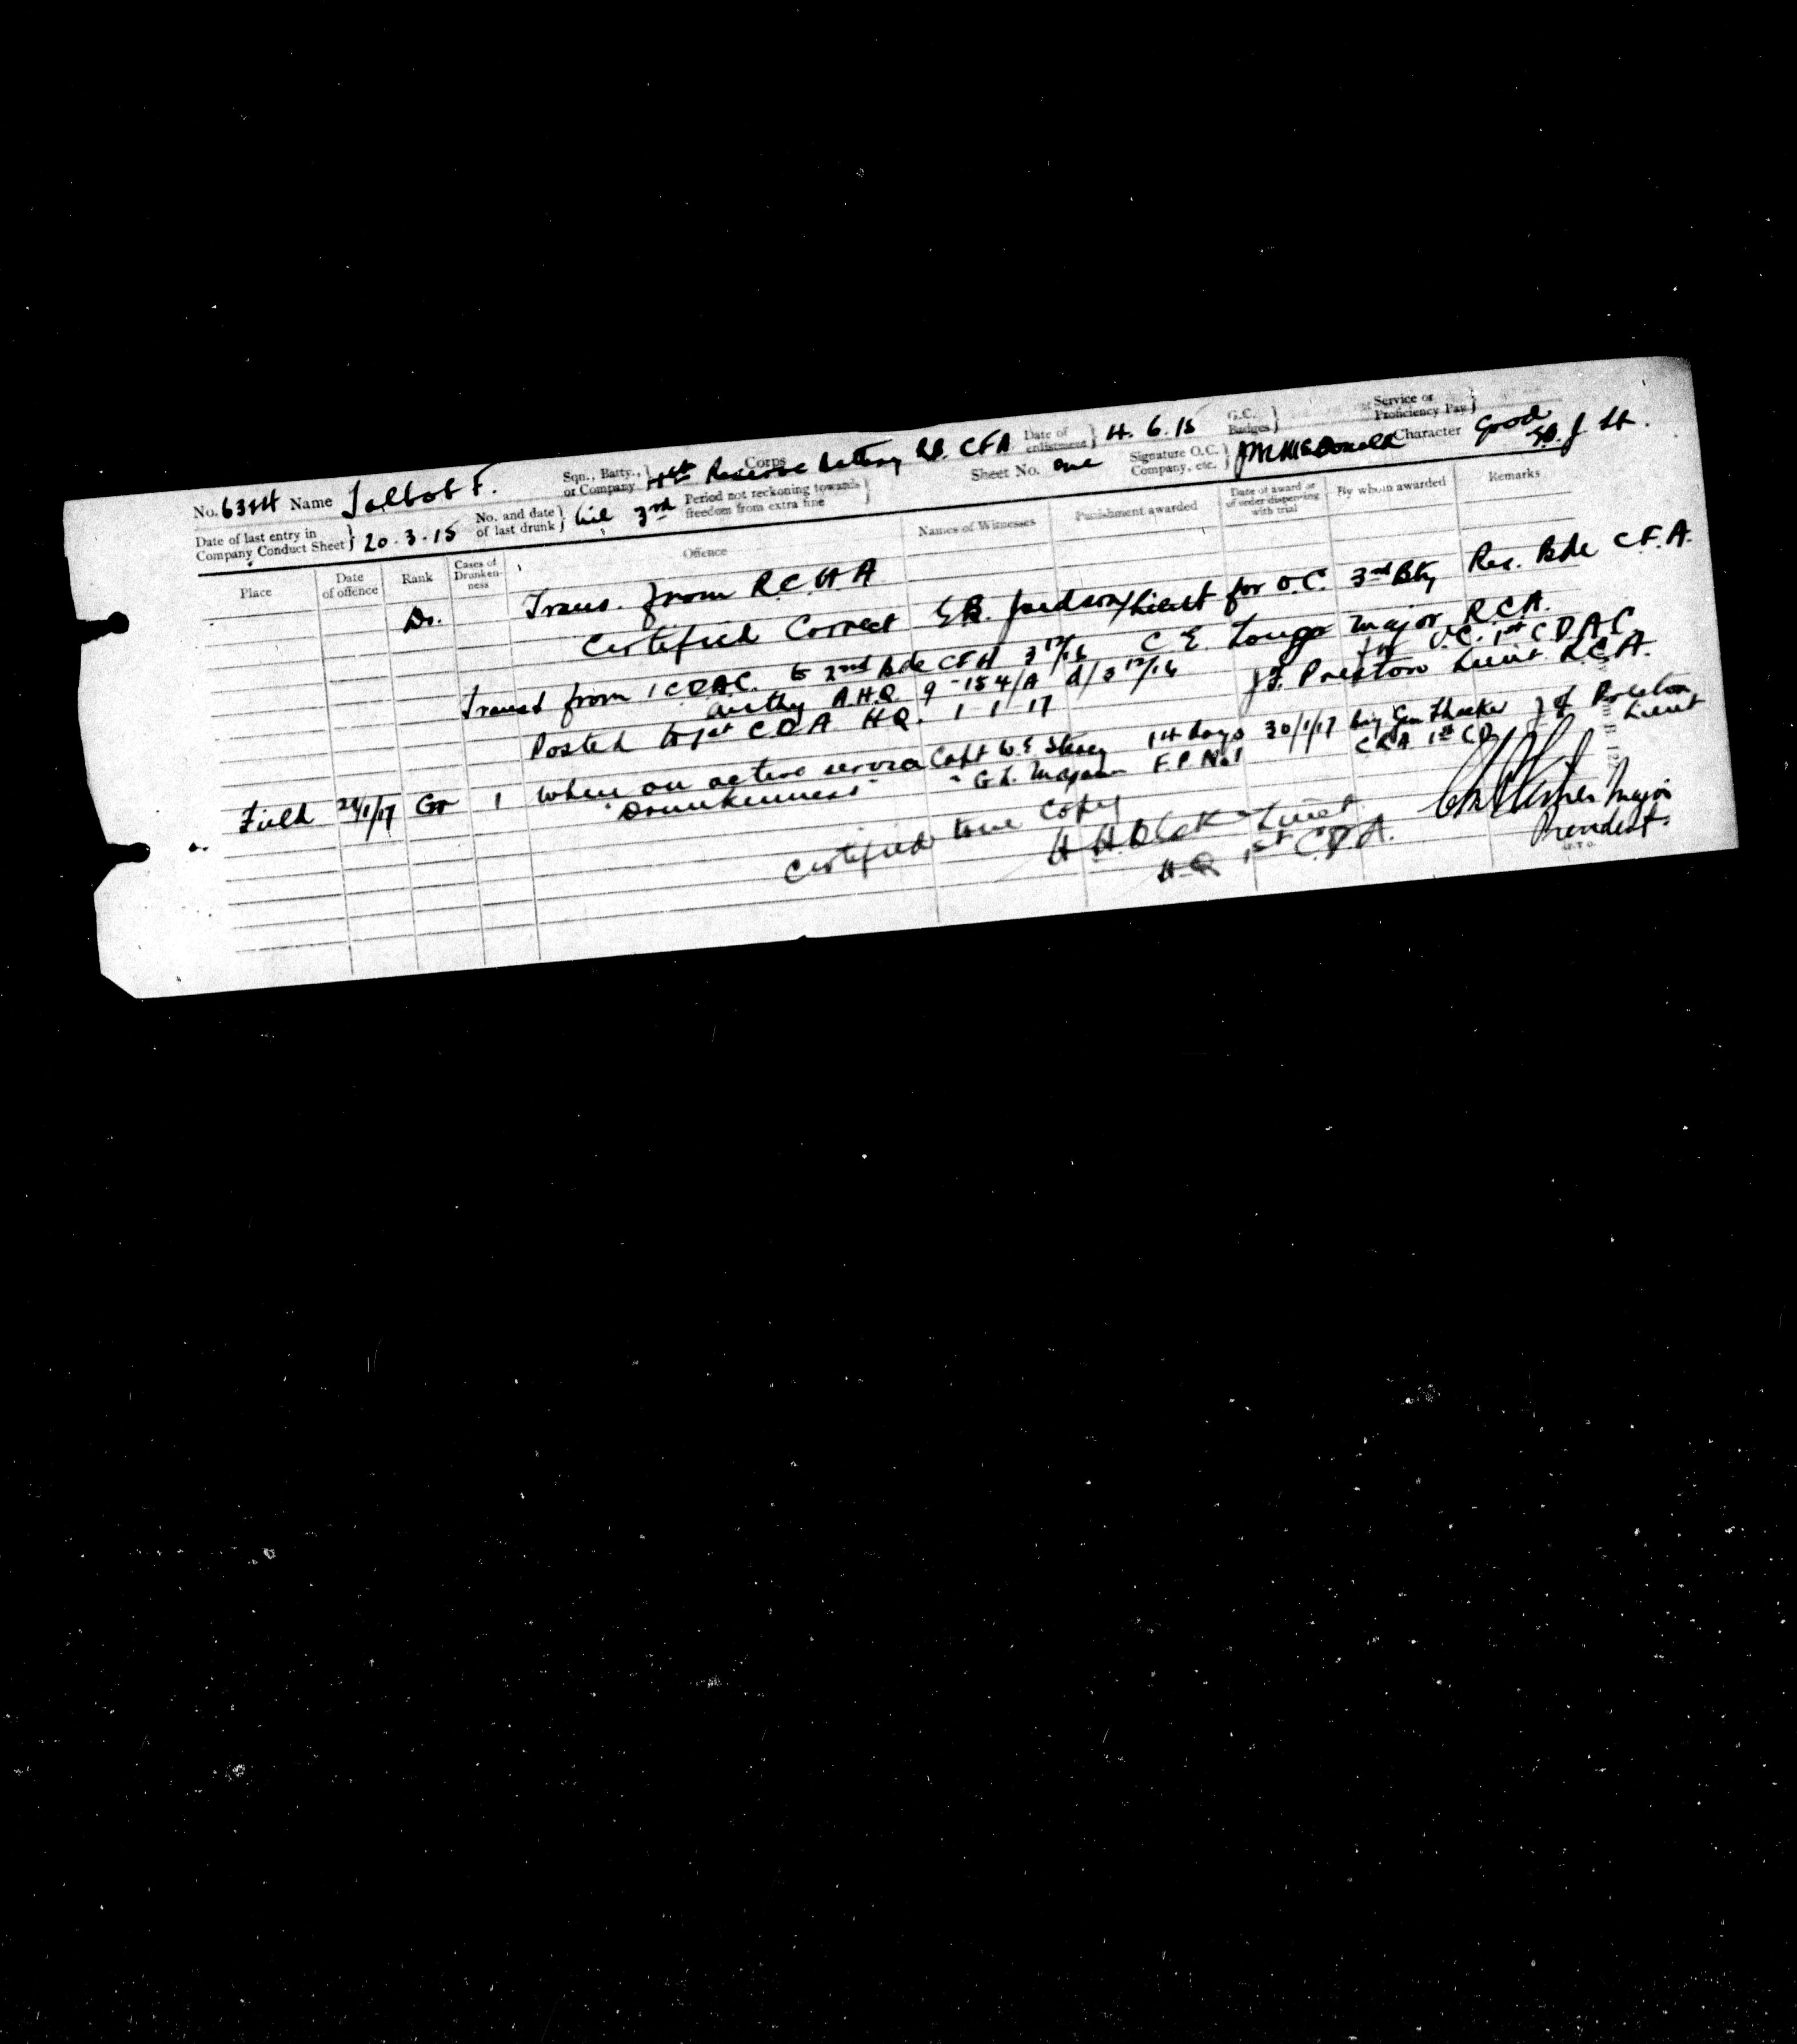 No. Name Talbot F. Sqn., Batty., or Company Corps Reserve Battery CFA Date of enlistment 4.6.15 G.C. Badges Service or Proficiency Pay
Date of last entry in Company Conduct Sheet 20.3.15 No. and date of last drunk 3rd Period not reckoning towards freedom from extra fine Sheet No. one Signature O.C. Company, etc. Character Good
Place Date of offence Rank Cases of Drunkenness Offence Names of Witnesses Punishment awarded Date of award or of order dispensing with trial By whom awarded Remarks
Dr. Trans. from R.C.H.A
Certified Correct Lieut for O.C. 3rd Bty Res. Bde C.F.A.
from 1 C.D.A.C. to 2nd Bde CFA 3 12/16 C E Long Major R.C.A.
authy A.H.Q. 9-154/A d/3 12/16 O.C. 1st C.D.A.C.
Posted to 1st CDA HQ. 1 1 17 Preston Lieut. R.C.A.
Field /1/17 Gr 1 When on active service Capt W.E. 14 days 30/1/17 Brig Gen Thacker Preston
"Drunkenness" " G. F.P. No1 CRA 1st CD Lieut
Certified true copy
Lieut Major
H.Q 1st C.D.A. President
P.T.O.